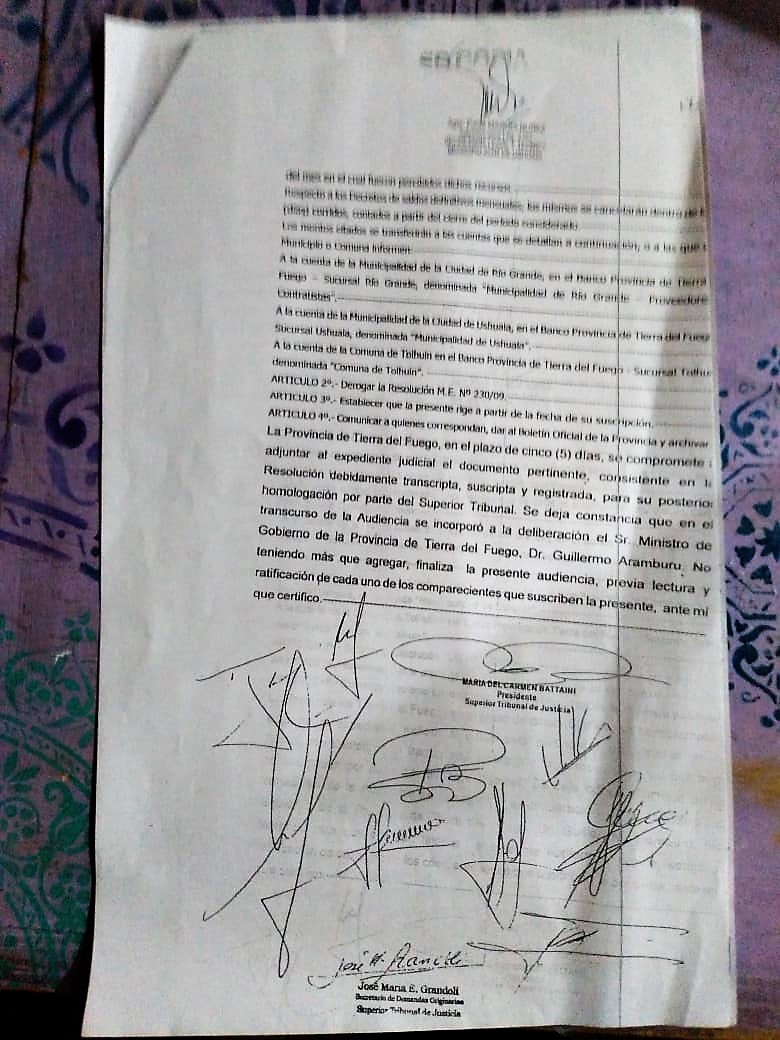 del mes en el cual fueron percibidos dichos recursos.
Respecto a los Decretos de saldos definitivos mensuales, los mismos se cancelarán dentro de
(días) corridos, contados a partir del cierre del período considerado.
Los montos citados se transferirán a las cuentas que se detallan a continuación, o a las que
Municipio o Comuna informen:
A la cuenta de la Municipalidad de la Ciudad de Río Grande, en el Banco Provincia de Tierra
Fuego – Sucursal Río Grande, denominada "Municipalidad de Río Grande – Proveedore
Contratistas".
A la cuenta de la Municipalidad de la Ciudad de Ushuaia, en el Banco Provincia de Tierra del Fuego
Sucursal Ushuaia, denominada "Municipalidad de Ushuaia".
A la cuenta de la Comuna de Tolhuin en el Banco Provincia de Tierra del Fuego - Sucursal Tolhui
denominada "Comuna de Tolhuin".
ARTICULO 2º.- Derogar la Resolución M.E. Nº 230/09.
ARTICULO 3º.- Establecer que la presente rige a partir de la fecha de su suscripción.
ARTICULO 4º.- Comunicar a quienes correspondan, dar al Boletín Oficial de la Provincia y archivar
La Provincia de Tierra del Fuego, en el plazo de cinco (5) días, se compromete
adjuntar al expediente judicial el documento pertinente, consistente en la
Resolución debidamente transcripta, suscripta y registrada, para su posterior
homologación por parte del Superior Tribunal. Se deja constancia que en el
transcurso de la Audiencia se incorporó a la deliberación el Sr. Ministro de
Gobierno de la Provincia de Tierra del Fuego, Dr. Guillermo Aramburu. No
teniendo más que agregar, finaliza la presente audiencia, previa lectura y
ratificación de cada uno de los comparecientes que suscriben la presente, ante mí
que certifico.
MARIA DEL CARMEN BATTAINI
Presidente
Superior Tribunal de Justicia
José Maria E. Grandoli
Secretario de Demandas Originarias
Superior Tribunal de Justicia